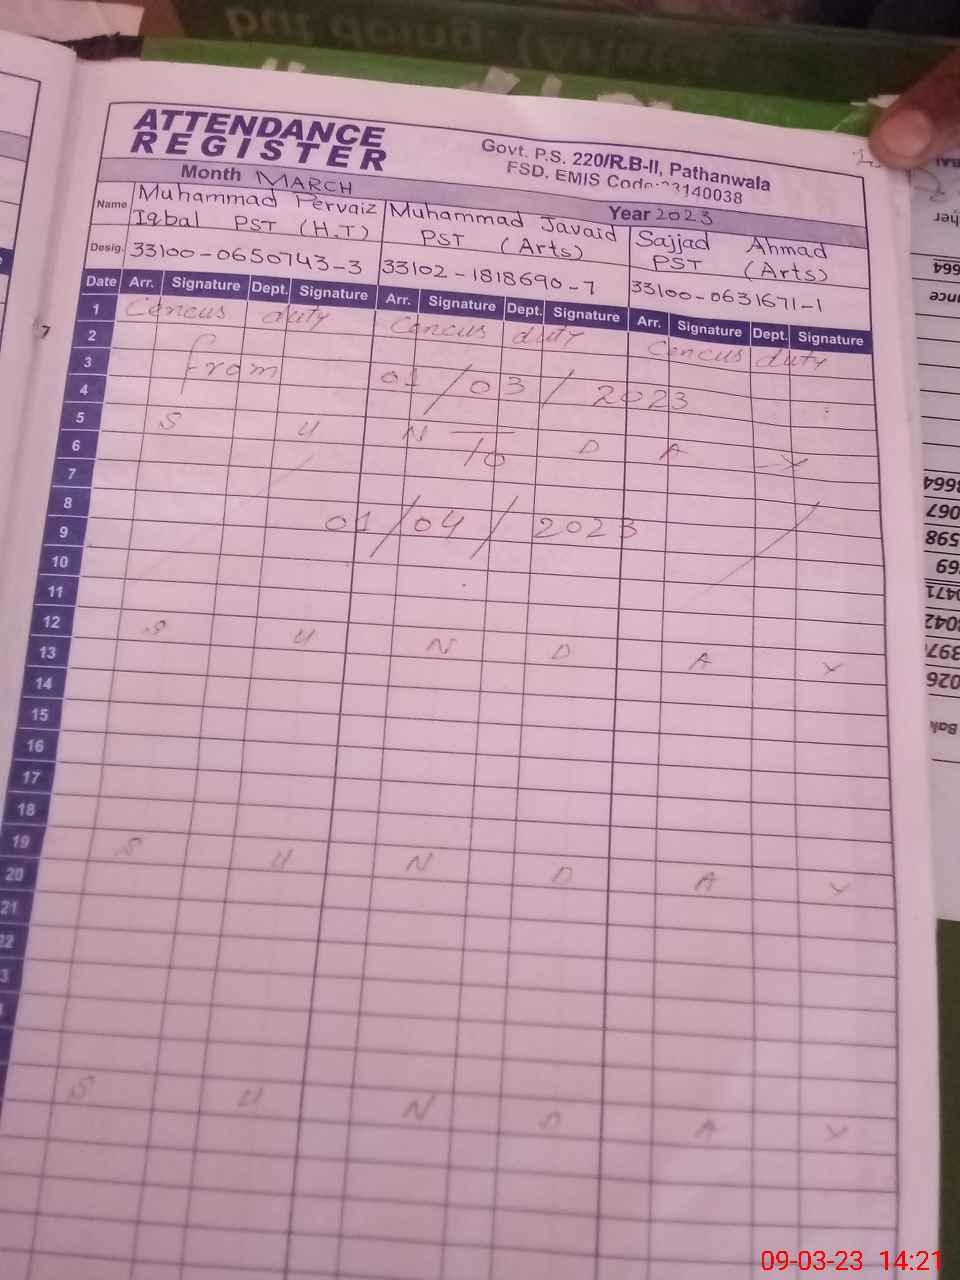 ATTENDANCE
REGISTER
Govt. P.S. 220/R.B-II, Pathanwala
FSD, EMIS Code: 33140038
Month MARCH
Year 2023
Name Muhammad Pervaiz Iqbal PST (H.T)
Muhammad Javaid PST (Arts)
Sajjad Ahmad PST (Arts)
Desig. 33100-0650743-3
33102-1818690-7
33100-0631671-1
Date Arr. Signature Dept. Signature Arr. Signature Dept. Signature Arr. Signature Dept. Signature
1 Cencus duty Cencus duty Cencus duty
2
3 from 01/03/2023
4
5 S U N D A Y
6 To
7
8
9 01/04/2023
10
11
12 S U N D A Y
13
14
15
16
17
18
19 S U N D A Y
20
21
22
3
S U N D A Y
7
664
664
067
598
69
0471
042
397
026
09-03-23 14:21